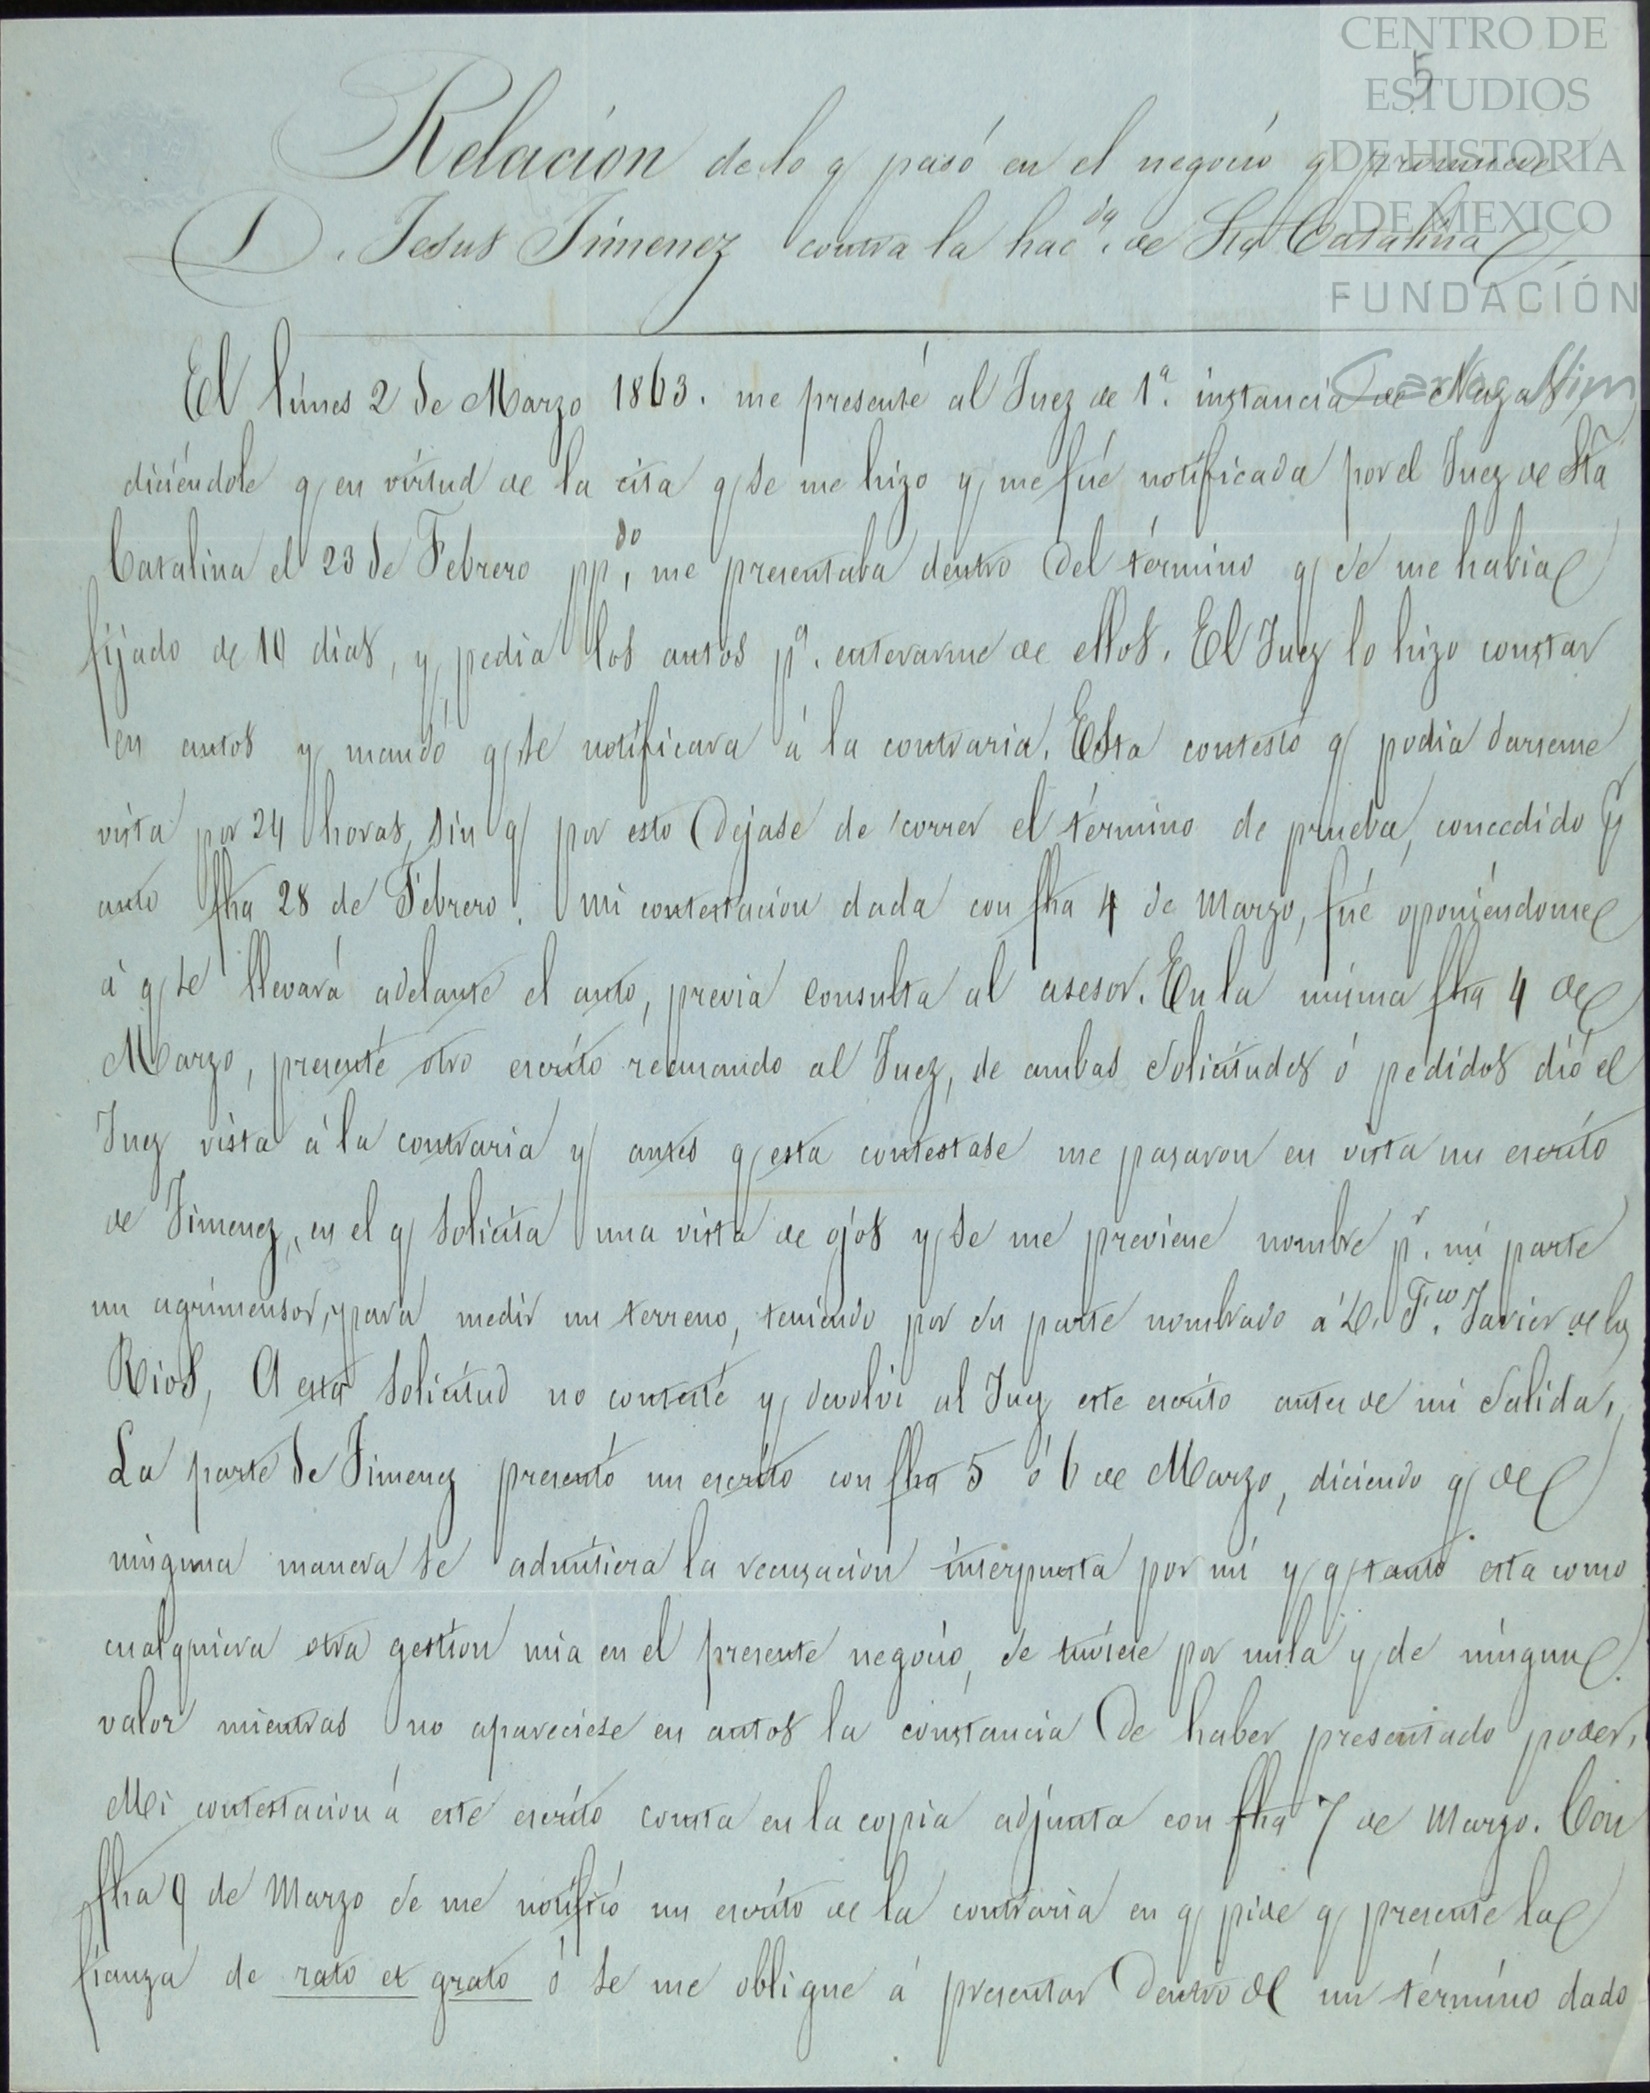 CENTRO DE
ESTUDIOS
DE HISTORIA
DE MEXICO
FUNDACIÓN
Carlos Slim
5
Relacion de lo q pasó en el negocio q promueve
D. Jesus Jimenez contra la hac.da de Sta Catalina
El lúnes 2 de Marzo 1863. me presenté al Juez de 1.a instancia de Nazas,
diciéndole q en virtud de la cita q se me hizo y me fué notificada por el Juez de Sta
Catalina el 23 de Febrero pp.do, me presentaba dentro del término q se me habia
fijado de 10 dias, y pedia los autos p.a enterarme de ellos. El Juez lo hizo constar
en autos y mandó q se notificara á la contraria. Esta contestó q podia darseme
vista por 24 horas, sin q por esto dejase de correr el término de prueba, concedido p.r
auto fha 28 de Febrero. Mi contestacion dada con fha 4 de Marzo, fué oponiéndome
á q se llevará adelante el auto, previa consulta al asesor. En la misma fha 4 de
Marzo, presenté otro escrito recusando al Juez, de ambas solicitudes ó pedidos dió el
Juez vista á la contraria y antes q esta contestase me pasaron en vista un escrito
de Jimenez, en el q solicita una vista de ojos y se me previene nombre p.r mi parte
un agrimensor, para medir un terreno, teniendo por su parte nombrado á D. F.co Javier de los
Rios, A esta solicitud no contesté y devolvi al Juez este escrito antes de mi salida,
La parte de Jimenez presentó un escrito con fha 5 ó 6 de Marzo, diciendo q de
ninguna manera se admitiera la recusacion interpuesta por mi y q tanto esta como
cualquiera otra gestion mia en el presente negocio, se tuviese por nula y de ningun
valor mientras no apareciese en autos la constancia de haber presentado poder,
Mi contestacion á este escrito consta en la copia adjunta con fha 7 de Marzo. Con
fha 9 de Marzo se me notificó un escrito de la contraria en q pide q presente la
fianza de rato et grato ó se me obligue á presentar dentro de un término dado